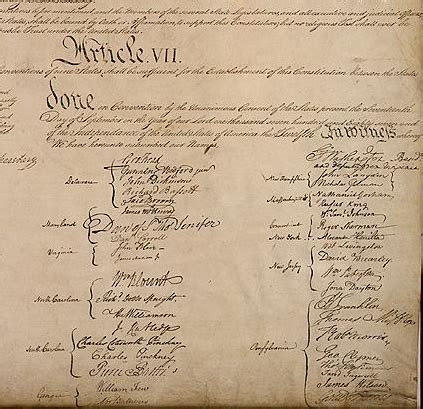 the several State Legislatures, and all executive and judicial officers
shall be bound by Oath or Affirmation, to support this Constitution; but no religious Test shall ever be
public Trust under the United States.
Article. VII.
Conventions of nine States, shall be sufficient for the Establishment of this Constitution between the States
Done in Convention by the Unanimous Consent of the States present the Seventeenth
Day of September in the Year of our Lord one thousand seven hundred and Eighty seven and
of the Independance of the United States of America the Twelfth In Witness whereof
We have hereunto subscribed our Names,
Delaware
Geo: Read
Gunning Bedford jun
John Dickinson
Richard Bassett
Jaco: Broom
Maryland
James McHenry
Dan of St Thos. Jenifer
Danl Carroll
Virginia
John Blair
North Carolina
Wm Blount
Richd. Dobbs Spaight.
Hu Williamson
J. Rutledge
Charles Cotesworth Pinckney
Charles Pinckney
Pierce Butler.
Georgia
William Few
Abr Baldwin
New Hampshire
John Langdon
Nicholas Gilman
Massachusetts
Nathaniel Gorham
Rufus King
Connecticut
Wm. Saml. Johnson
Roger Sherman
New York
Alexander Hamilton
New Jersey
Wil: Livingston
David Brearley.
Wm. Paterson.
Jona: Dayton
Pensylvania
B Franklin
Thomas Mifflin
Robt Morris
Geo. Clymer
Thos. FitzSimons
Jared Ingersoll
James Wilson
Gouv Morris